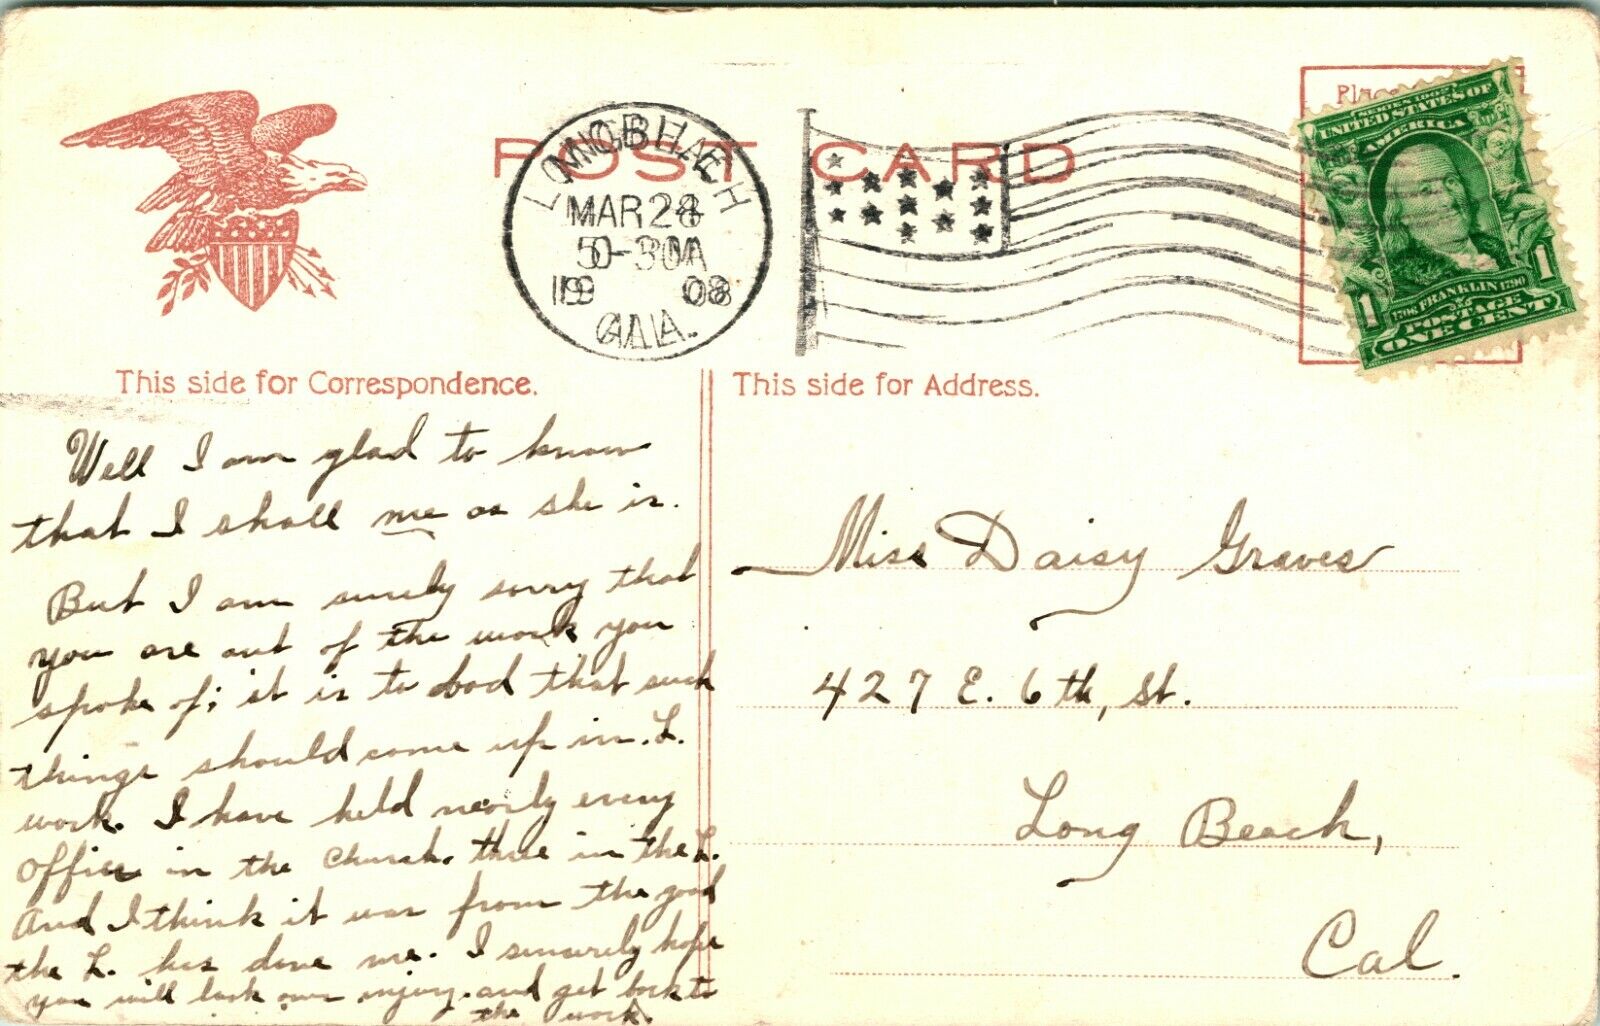 POST CARD
MAR 24
5-30 M
1908
CAL.
Place
SERIES 1902
UNITED STATES OF
AMERICA
1706 FRANKLIN 1790
POSTAGE
1 ONE CENT 1
This side for Correspondence.
This side for Address.
Well I am glad to know
that I shall me as she is.
But I am surely sorry that
you are out of the work you
spoke of; it is to bad that such
things should come up in L.
work. I have held nearly every
office in the Church, three in the L.
And I think it was from the good
the L. has done me. I sincerely hope
you will look over injury, and get back to
the work.
Miss Daisy Graves
427 E. 6th, St.
Long Beach,
Cal.